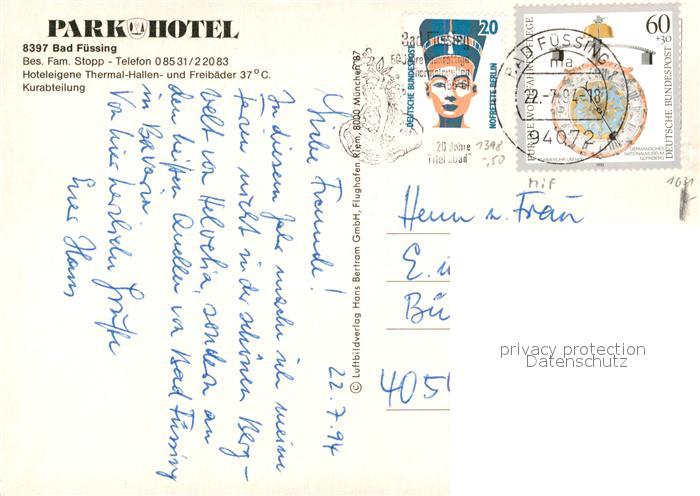 PARK HOTEL
8397 Bad Füssing
Bes. Fam. Stopp - Telefon 0 85 31/2 20 83
Hoteleigene Thermal-Hallen- und Freibäder 37°C.
Kurabteilung
22.7.94
Liebe Freunde!
In diesem Jahr mache ich meine
Ferien nicht in der schönen Berg-
welt von Helvetia, sondern an
den heißen Quellen von Bad Füssing
in Bavaria
Von hier herzliche Grüße
Euer Hans
© Luftbildverlag Hans Bertram GmbH, Flughafen Riem, 8000 München 87
Bad Füssing
20 Jahre
Titel „Bad"
DEUTSCHE BUNDESPOST
20
NOFRETETE BERLIN
BAD FÜSSING
22.-7.94-18
94072
FÜR DIE WOHLFAHRTSPFLEGE
60
+30
DEUTSCHE BUNDESPOST
GERMANISCHES
NATIONALMUSEUM
NÜRNBERG
1398
-,50
mif
1631
Herrn u. Frau
E. u
Bü
405
privacy protection
Datenschutz